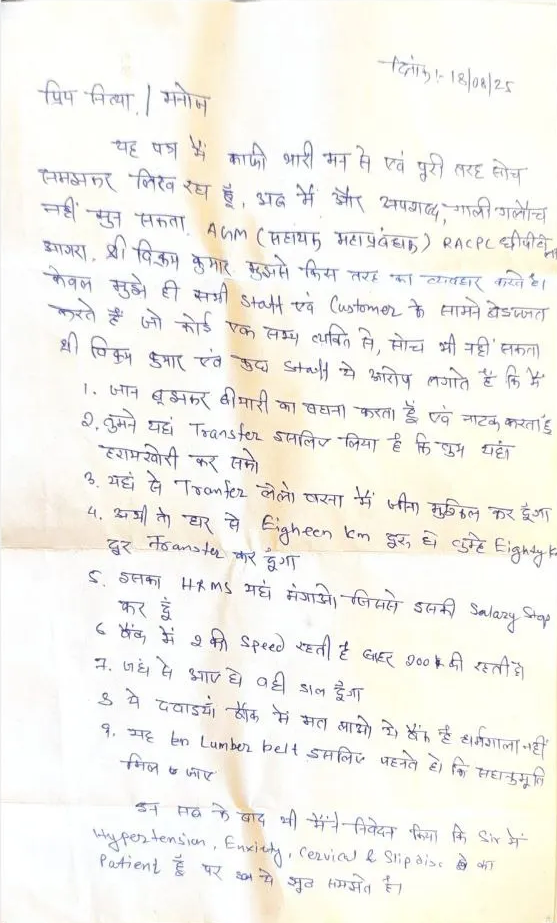 दिनांक:- 18/08/25
प्रिय नित्या / मनोज
यह पत्र मैं काफी भारी मन से एवं पूरी तरह सोच
समझकर लिख रहा हूँ, अब मैं और अपशब्द, गाली गलौच
नहीं सुन सकता. AGM (सहायक महाप्रबंधक) RACPC
आगरा. श्री विक्रम कुमार मुझसे किस तरह का व्यवहार करते है।
केवल मुझे ही सभी Staff एवं Customer के सामने बेइज्जत
करते है जो कोई एक सभ्य व्यक्ति से, सोच भी नहीं सकता
श्री विक्रम कुमार एवं कुछ Staff ये आरोप लगाते है कि मैं
1. जान बूझकर बीमारी का बहाना करता हूँ एवं नाटक करता हूं
2. तुमने यहां Transfer इसलिए लिया है कि तुम यहां
हरामखोरी कर सको
3. यहां से Tranfer लेलो वरना मैं जीना मुश्किल कर दूंगा
4. अभी तो घर से Eigheen km दूर हो तुम्हे Eighty
दूर Transfer कर दूंगा
5. इसका HRMS यहां मंगाओ जिससे इसकी Salary Stop
कर दूं
6 बैंक में 2 की Speed रहती है बाहर 200 की रहती है।
7. जहां से आए हो वही डाल दूँगा
8 ये दवाइयां बैंक में मत लाओ ये बैंक है धर्मशाला नहीं
9. यह Lumber belt इसलिए पहनते हो कि सहानुभूति
मिल जाए
इन सब के बाद भी मैंने निवेदन किया कि Sir मैं
Hypertension, Enxiety, Cervical & Slip disc का
Patient हूँ पर ये झूठ समझते है।